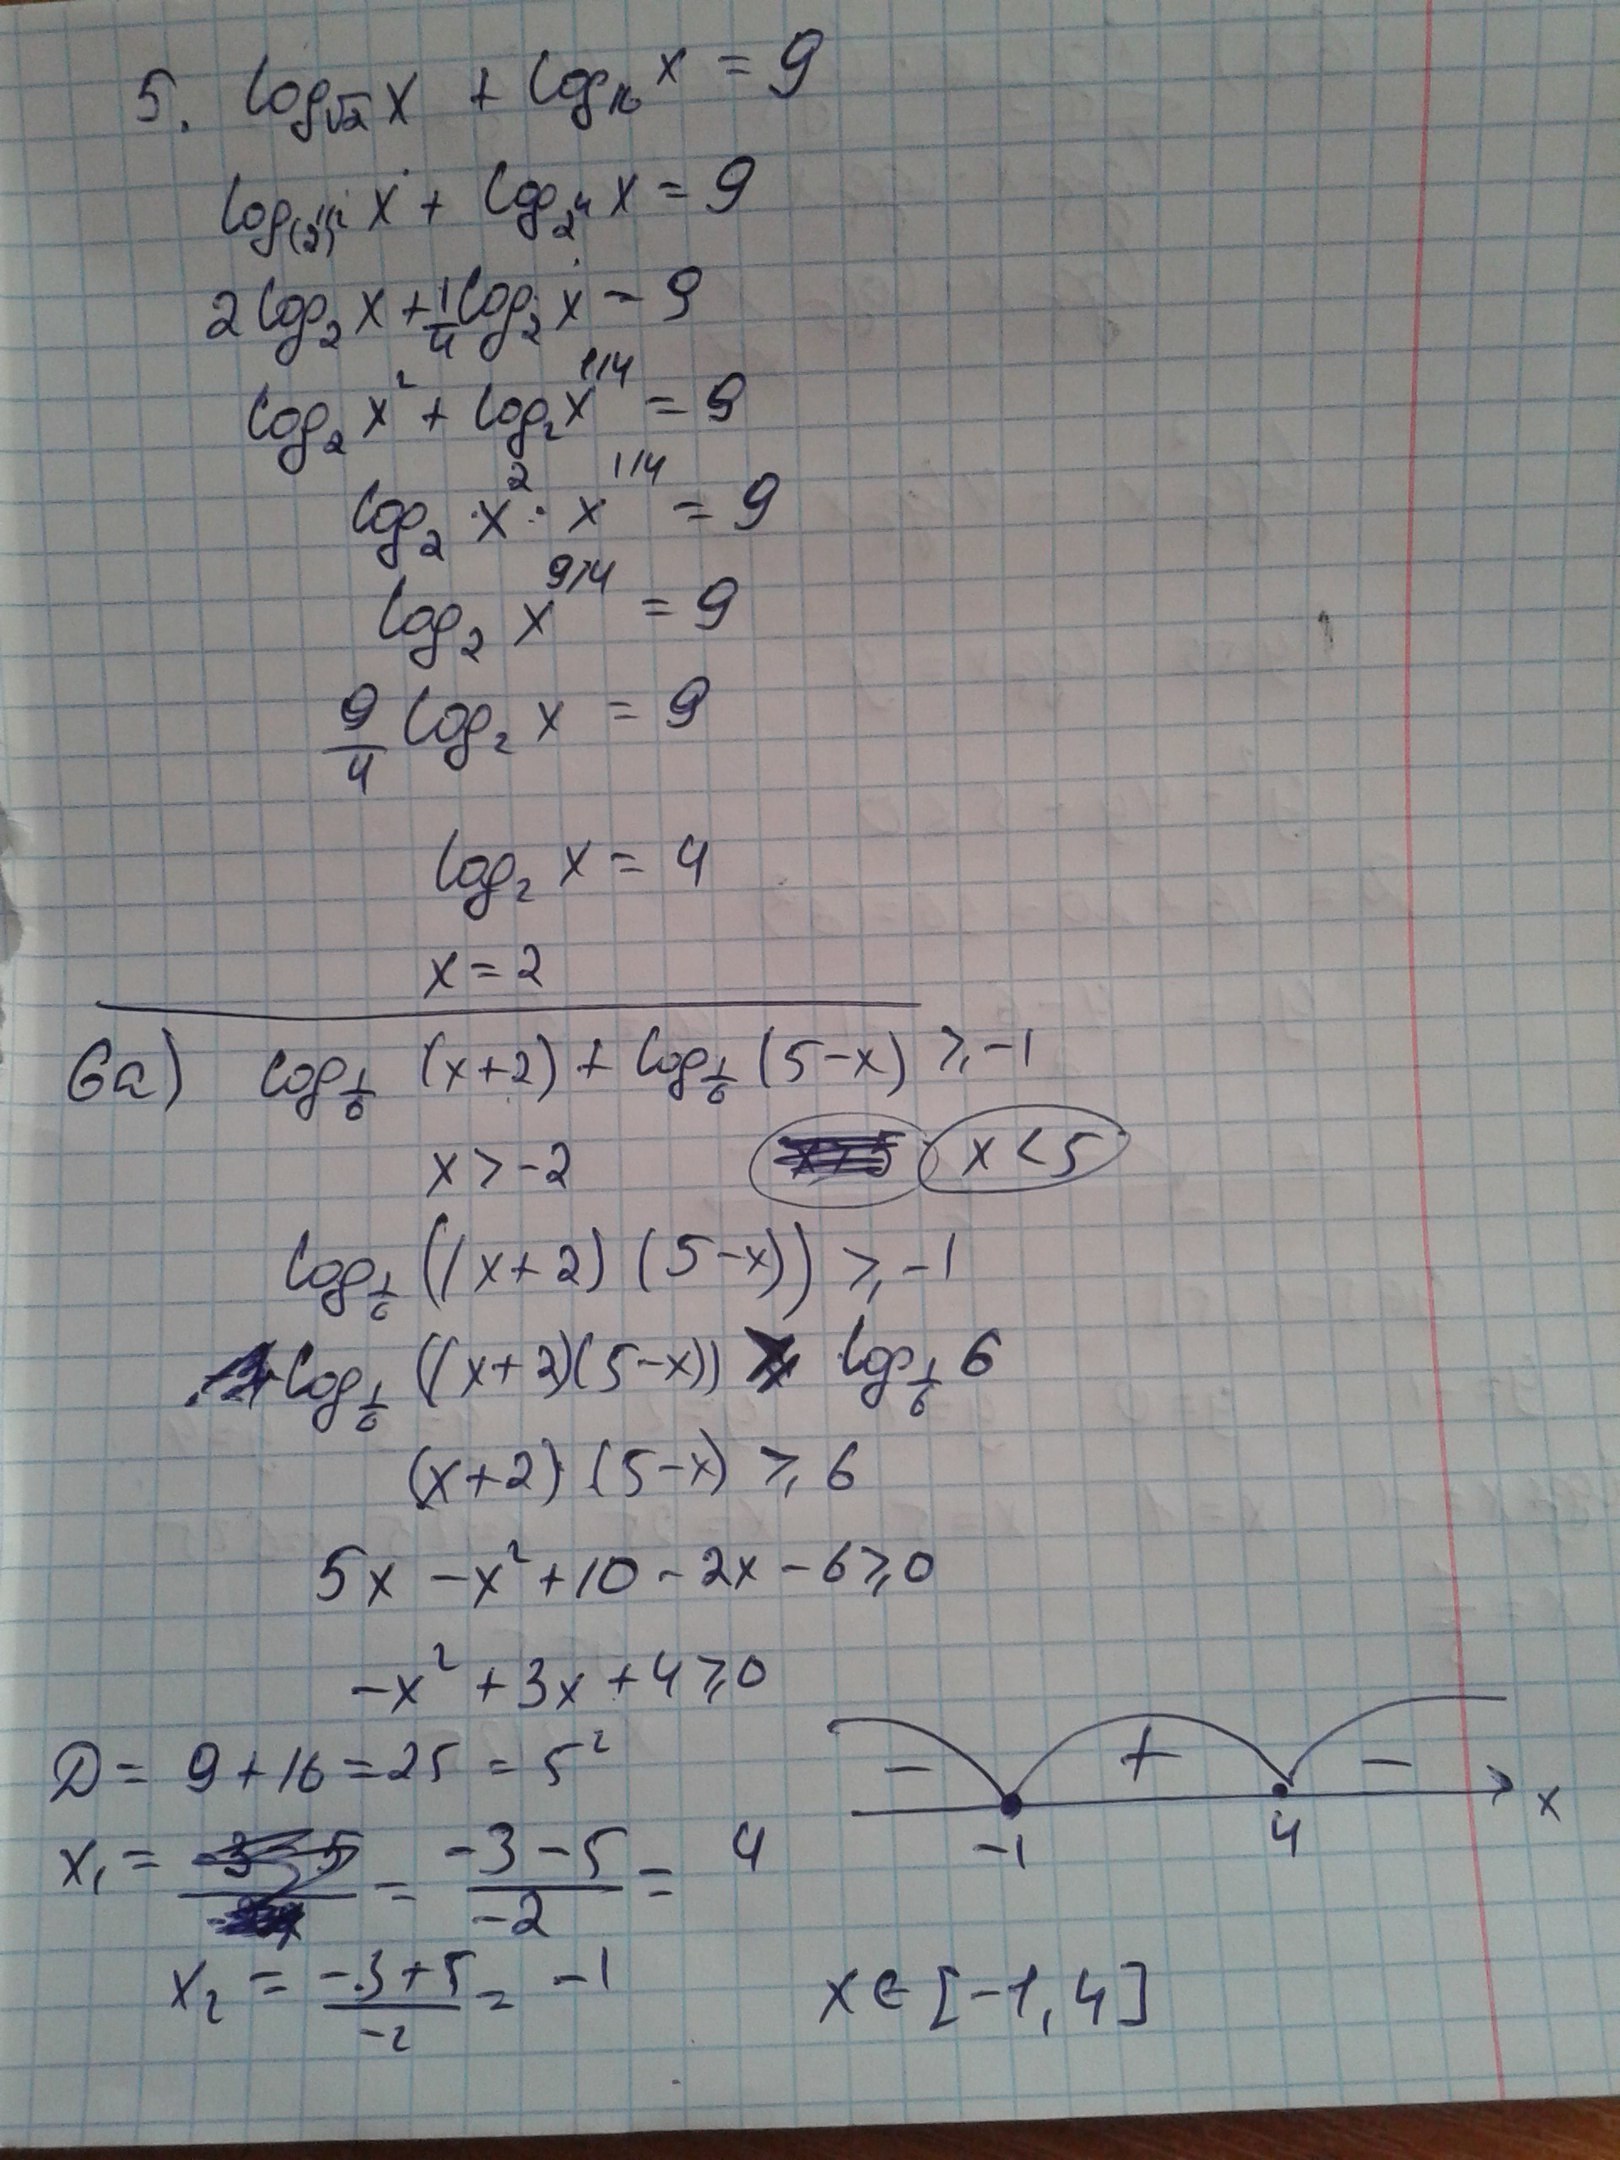 5. log_√2 x + log_16 x = 9
log_(2)^1/2 x + log_2^4 x = 9
2 log_2 x + 1/4 log_2 x = 9
log_2 x^2 + log_2 x^1/4 = 9
log_2 x^2 · x^1/4 = 9
log_2 x^9/4 = 9
9/4 log_2 x = 9
log_2 x = 4
x = 2
6a) log_1/6 (x+2) + log_1/6 (5-x) ⩾ -1
x > -2 x < 5
log_1/6 ((x+2)(5-x)) ⩾ -1
log_1/6 ((x+2)(5-x)) log_1/6 6
(x+2)(5-x) ⩾ 6
5x - x^2 + 10 - 2x - 6 ⩾ 0
-x^2 + 3x + 4 ⩾ 0
D = 9 + 16 = 25 = 5^2
- + -
-1 4 x
x_1 = = (-3-5)/-2 = 4
x_2 = (-3+5)/-2 = -1
x ∈ [-1, 4]